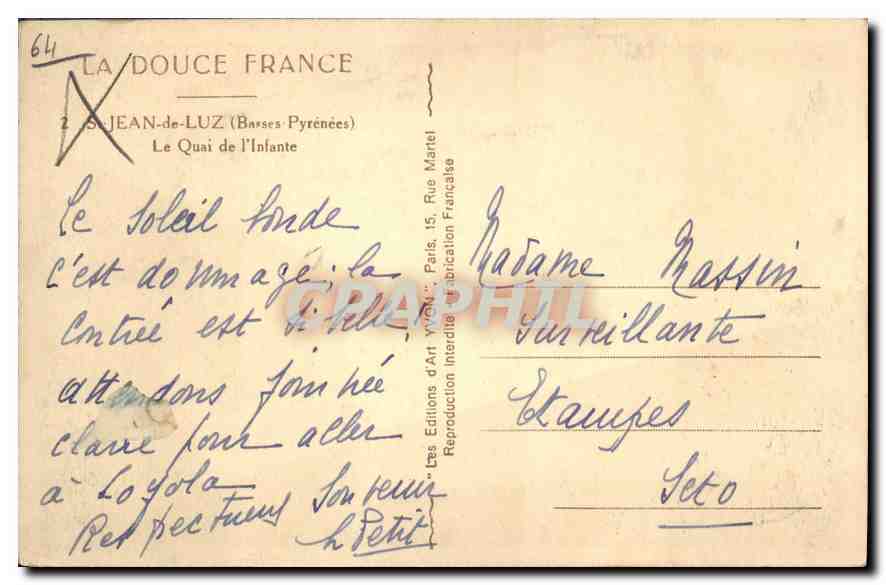 64
LA DOUCE FRANCE
2 St-JEAN-de-LUZ (Basses-Pyrénées)
Le Quai de l'Infante
Le Soleil boude
c'est dommage; la
contrée est si belle!
attendons journée
claire pour aller
à Loyola
Respectueux Souvenir
Petit
"Les Editions d'Art YVON", Paris, 15, Rue Martel
Reproduction Interdite Fabrication Française
Madame Massin
Surveillante
Etampes
Set O
CPAPHIL